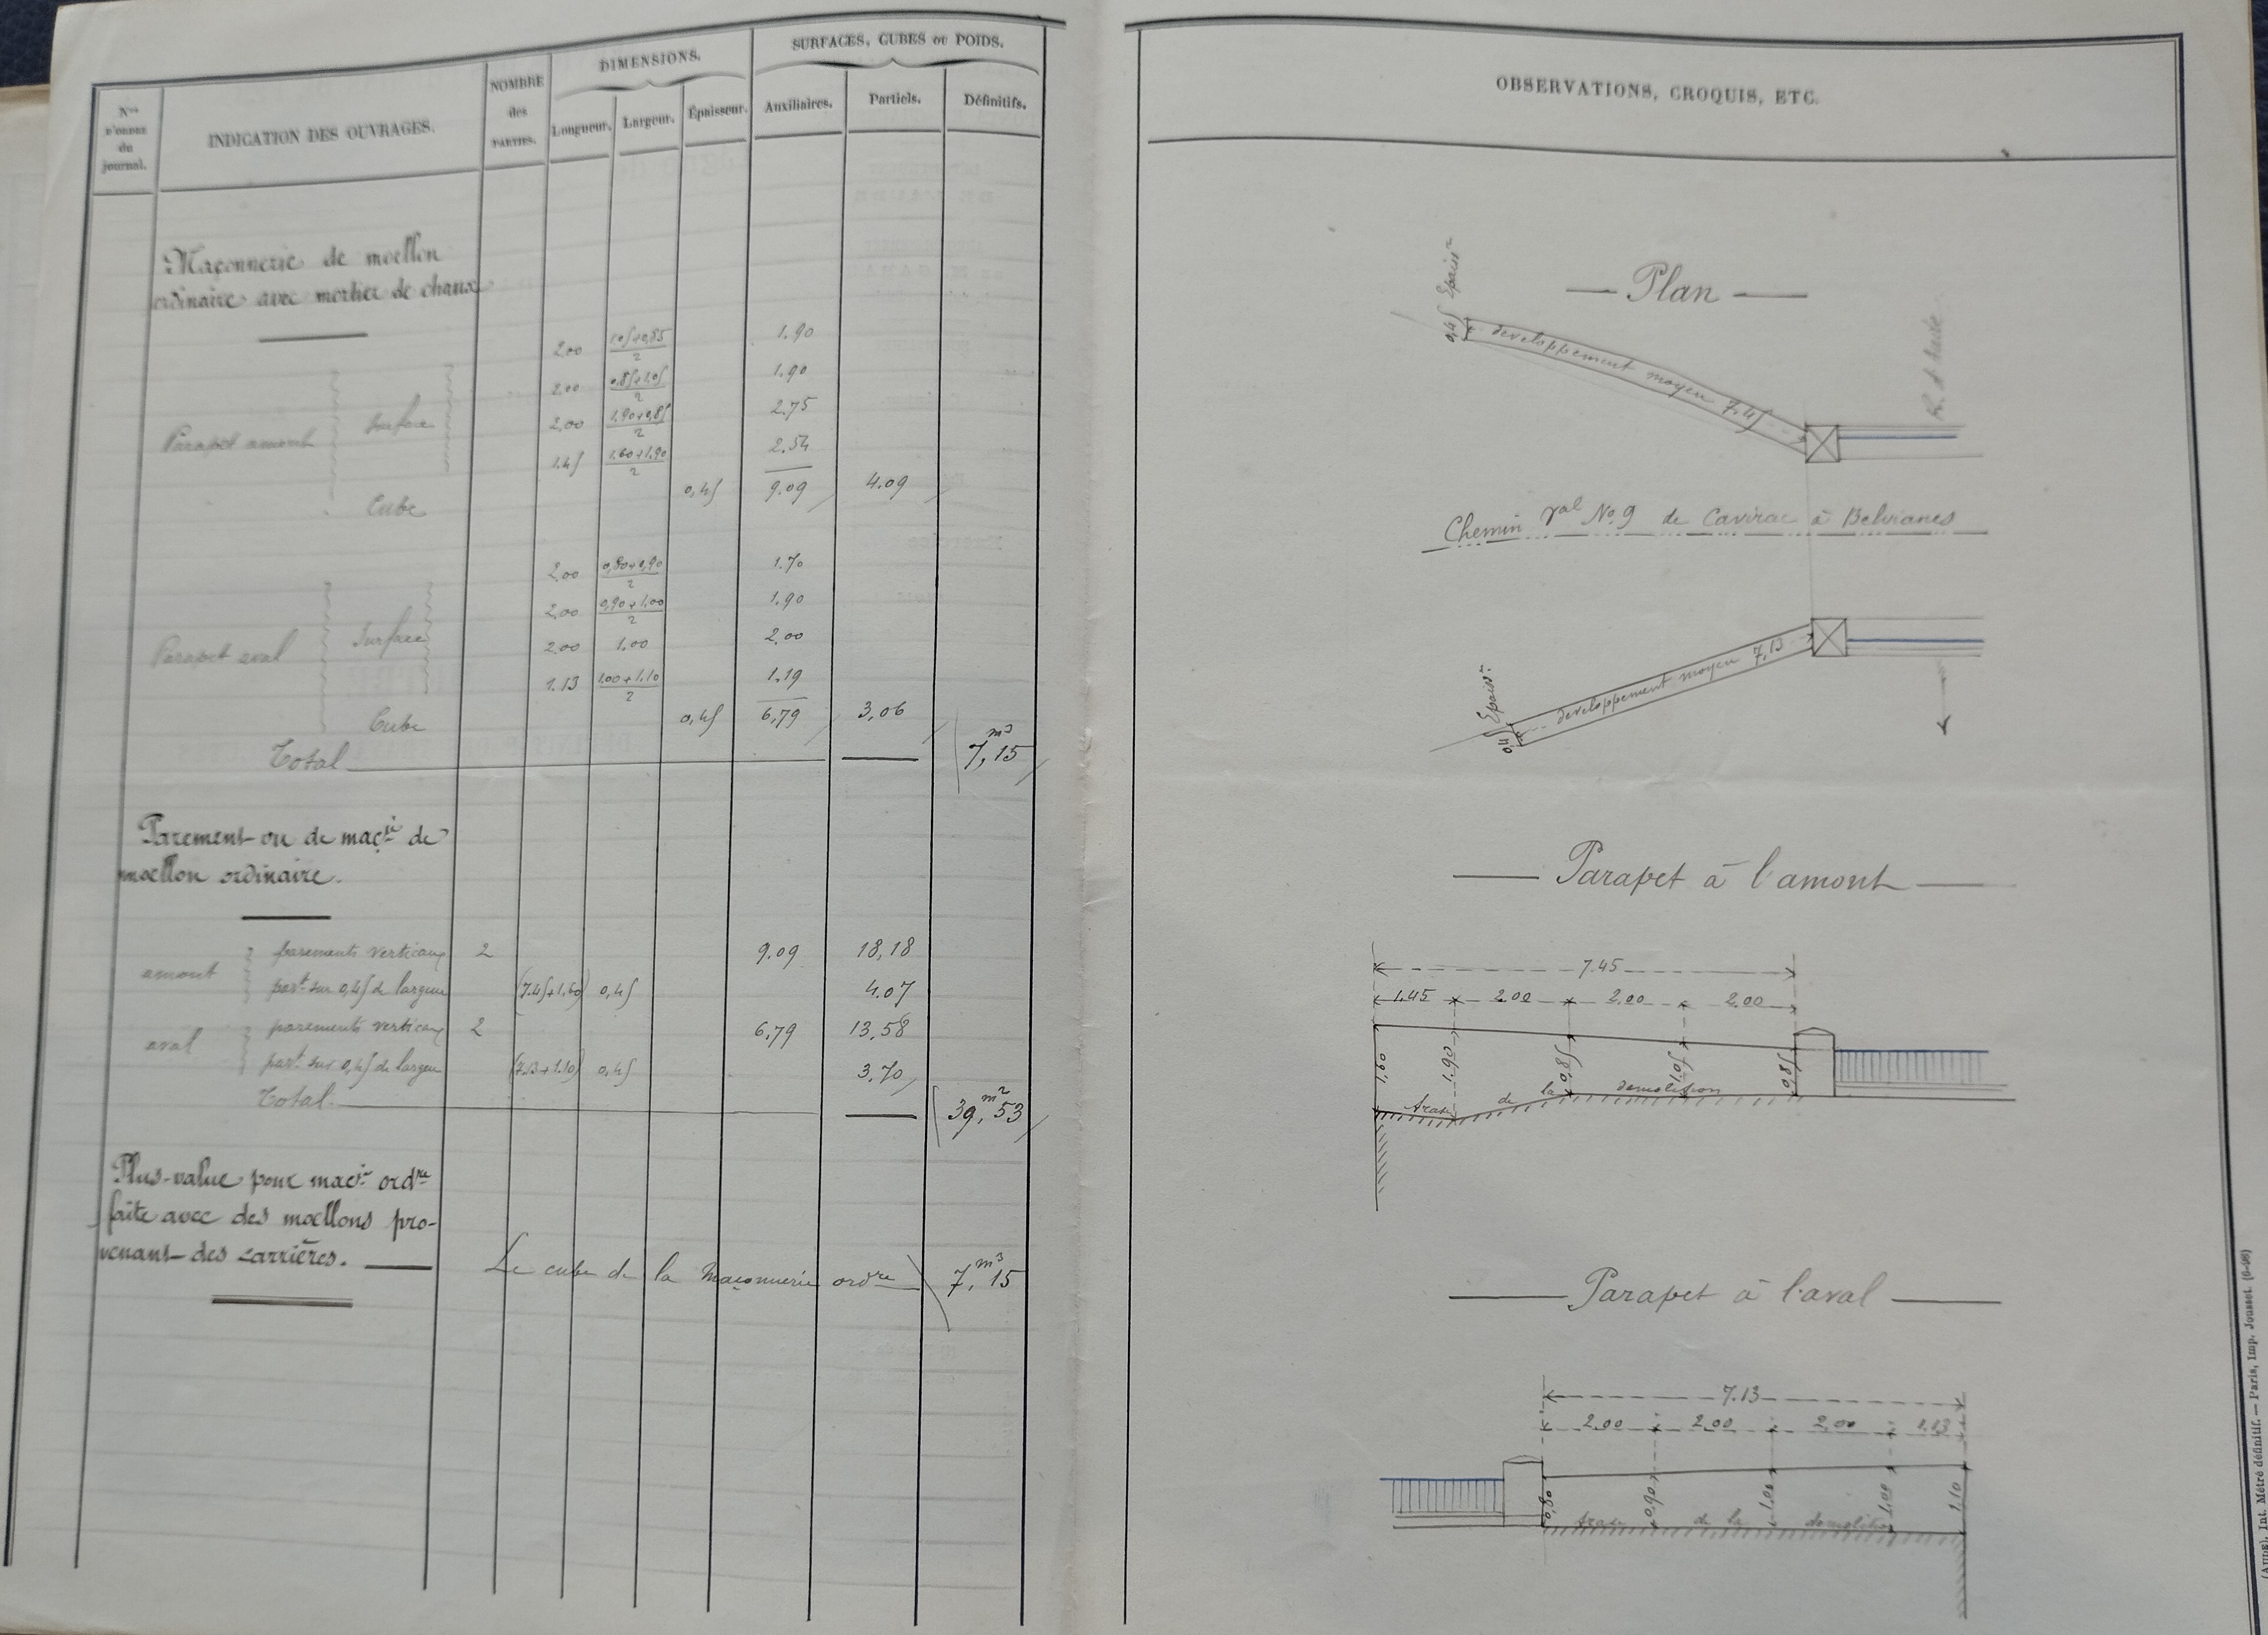 Nos D'ORDRE du journal.
INDICATION DES OUVRAGES.
NOMBRE des PARTIES.
DIMENSIONS.
Longueur. Largeur. Épaisseur.
SURFACES, CUBES ou POIDS.
Auxiliaires. Partiels. Définitifs.
Maçonnerie de moellon
ordinaire avec mortier de chaux
2,00 1,05+0,85/2 1.90
2,00 0,85+1.05/2 1.90
Parapet amont Surface 2,00 1.90+0,85/2 2.75
1.45 1.60+1.90/2 2.54
Cube 0,45 9.09 4.09
2,00 0,80+0,90/2 1.70
2,00 0,90+1.00/2 1.90
Parapet aval Surface 2,00 1.00 2.00
1.13 1.00+1.10/2 1.19
Cube 0,45 6,79 3,06
Total 7,15 m3
Parement vu de maçie de
moellon ordinaire.
amont parements verticaux 2 9.09 18,18
part sur 0,45 de largeur (7.45+1.60) 0,45 4.07
aval parements verticaux 2 6,79 13,58
part sur 0,45 de largeur (7.13+1.10) 0,45 3,70
Total 39,53 m2
Plus-value pour macie ordre
faite avec des moellons pro-
venant des carrières.
Le cube de la Maçonnerie ordre 7,15 m3
OBSERVATIONS, CROQUIS, ETC.
Plan
0,45 Epaisr
developpement moyen 7,45
R. d'Aude
Chemin val No 9 de Cavirac à Belvianes
developpement moyen 7,13
0,45 Epaisr
Parapet à l'amont
7.45
1.45 2.00 2.00 2.00
1,60 1.90 0,85 1.05 0,85
Arase de la demolition
Parapet à l'aval
7.13
2.00 2.00 2,00 1.13
0,80 0,90 1.00 1.00 1.10
Arase de la demolition
(AUDE). Int. Métré définitif. — Paris, Imp. Jousset.